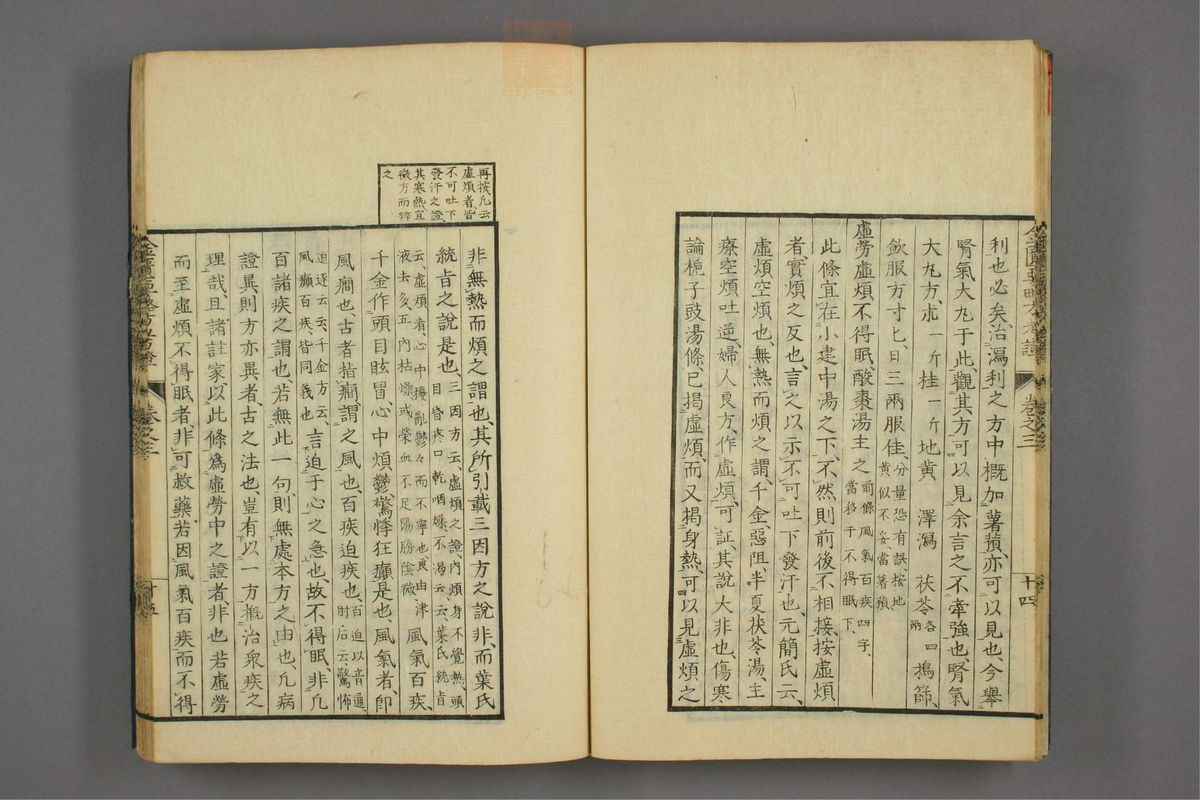 利也必矣、治瀉利之方中概加薯蕷、亦可以見也、今舉
腎氣大丸于此、觀其方可以見余言之不牽強也、腎氣
大丸方、朮一斤桂一斤地黄 澤瀉 茯苓各四兩搗篩、
飲服方寸匕、日三兩服佳、分量恐有誤按地
黄似不妥、當薯蕷
虛勞虛煩不得眠、酸棗湯主之前條風氣百疾四字、
當移于不得眠下、
此條宜在小建中湯之下、不然則前後不相接、按虛煩
者、實煩之反也、言之以示不可吐下發汗也、元簡氏云、
虛煩空煩也、無熱而煩之謂、千金、惡阻半夏茯苓湯、主
療空煩吐逆、婦人良方、作虛煩、可証、其說大非也、傷寒
論梔子豉湯條、已揭虛煩、而又揭身熱、可以見虛煩之
卷之三
十四
再按凡云
虛煩者、皆
不可吐下
發汗之證、
其寒熱宜
徵方而辨
之
非無熱而煩之謂也、其所引載三因方之說非、而葉氏
統旨之說是也、三因方云、虛煩之證、内煩身不覺熱、頭
目昏疼口乾咽燥、不渴云云、葉氏統旨
云虛煩者、心中擾亂鬱々而不寧也、良由津
液去多五内枯燥或榮血不足陽勝陰微風氣百疾、
千金作頭目眩冒、心中煩鬱驚悸狂癲是也、風氣者、即
風癇也、古者指癇謂之風也、百疾迫疾也、百迫以音通、
肘后云驚怖
迫逐云云、千金方云、
風癲百疾、皆同義也言迫于心之急也、故不得眠、非凡
百諸疾之謂也若無此一句、則無處本方之由也、凡病
證異、則方亦異者、古之法也、豈有以一方概治衆疾之
理哉、且諸註家以此條爲虛勞中之證者、非也若虛勞
而至虛煩不得眠者、非可救藥、若因風氣百疾而不得
卷之三
十五